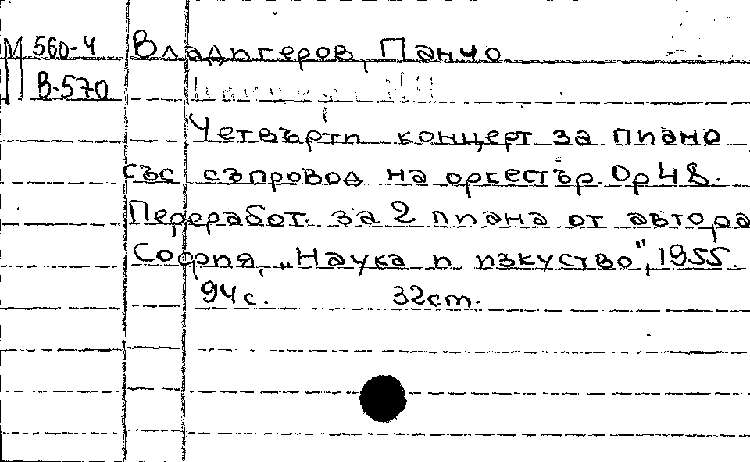 М 560-4 Владигеров, Панчо
В-570
Четвърти концерт за пиано
със съпровод на оркестър. Ор 48.
Переработ. за 2 пиана от автора
София, „Наука и изкуство", 1955.
94 с. 32 cm.